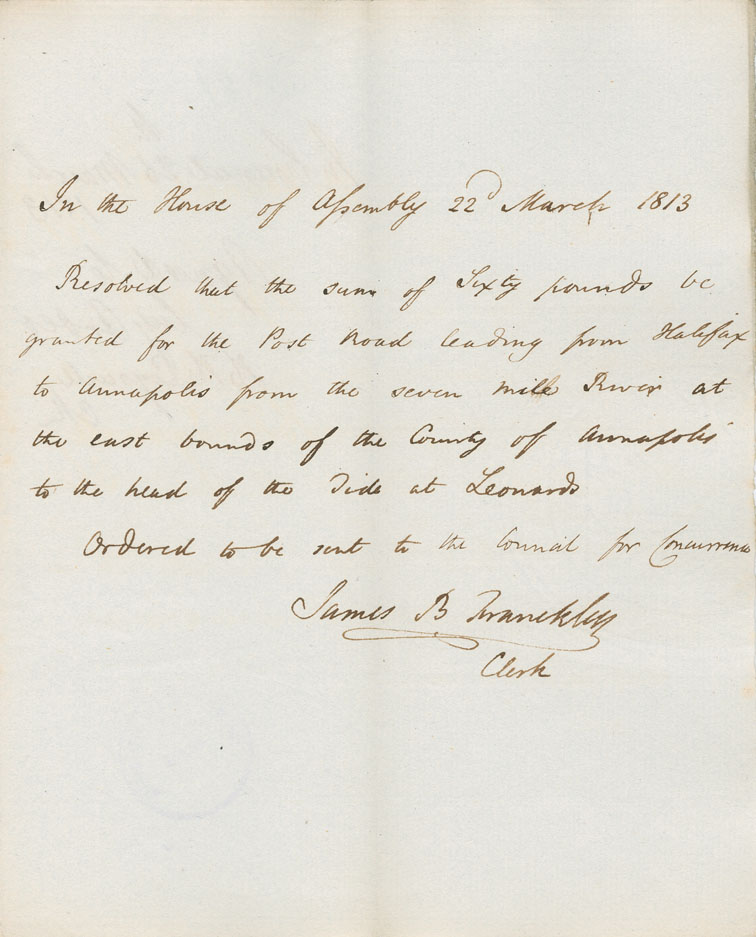 In the House of Assembly 22d March 1813
Resolved that the sum of Sixty pounds be
granted for the Post Road leading from Halifax
to Annapolis from the seven mile River at
the east bounds of the County of Annapolis
to the head of the Tide at Leonards
Ordered to be sent to the Council for Concurrence
James B Franckly
Clerk